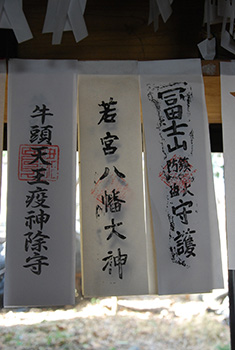 富士山守護
若宮八幡大神
牛頭天王疫神除守